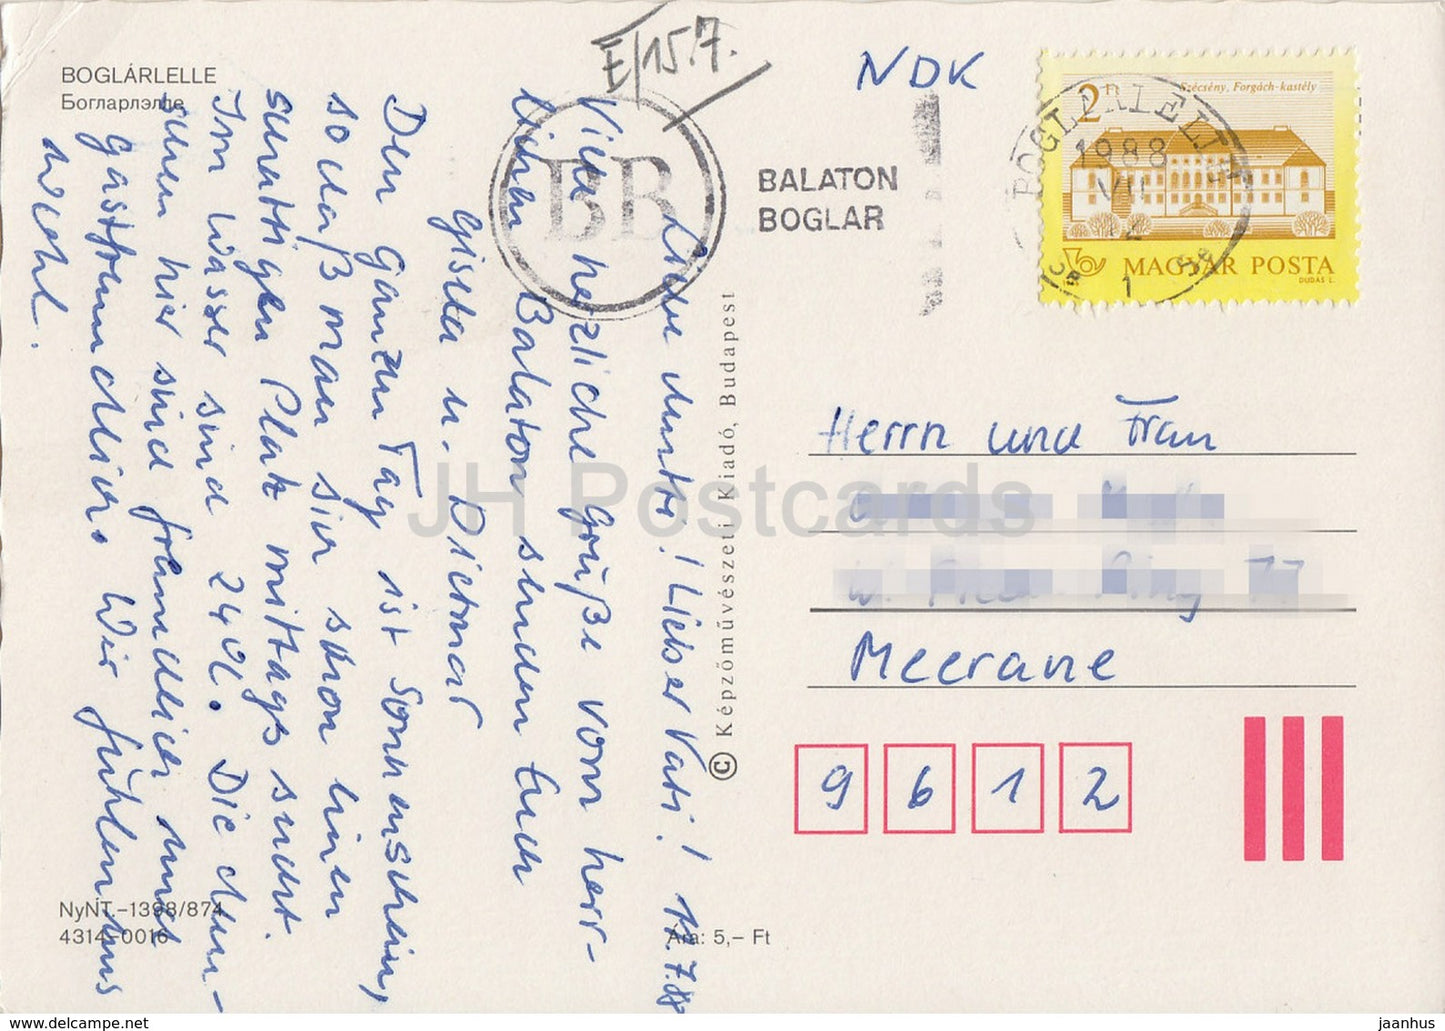 BOGLÁRLELLE
Богларлэлле
E/15.7.
NDK
BB
BALATON
BOGLAR
BOGLÁRLELLE
1988
VII
1
2 Ft
Szécsény, Forgách-kastély
MAGYAR POSTA
DUDÁS L.
11.7.88
Liebe Mutti! Lieber Vati!
Viele herzliche Grüße vom herr-
lichen Balaton senden Euch
Gisela u. Dietmar
Den ganzen Tag ist Sonnenschein,
sodaß man sich schon einen
schattigen Platz mittags sucht.
Im Wasser sind 24°C. Die Men-
schen hier sind freundlich und
gastfreundlich. Wir fühlen uns
wohl.
© Képzőművészeti Kiadó, Budapest
Herrn und Frau
Ring 77
Meerane
9 6 1 2
NyNT.–1398/874
4314–0016
Ára: 5,– Ft
JH Postcards
delcampe.net
jaanhus